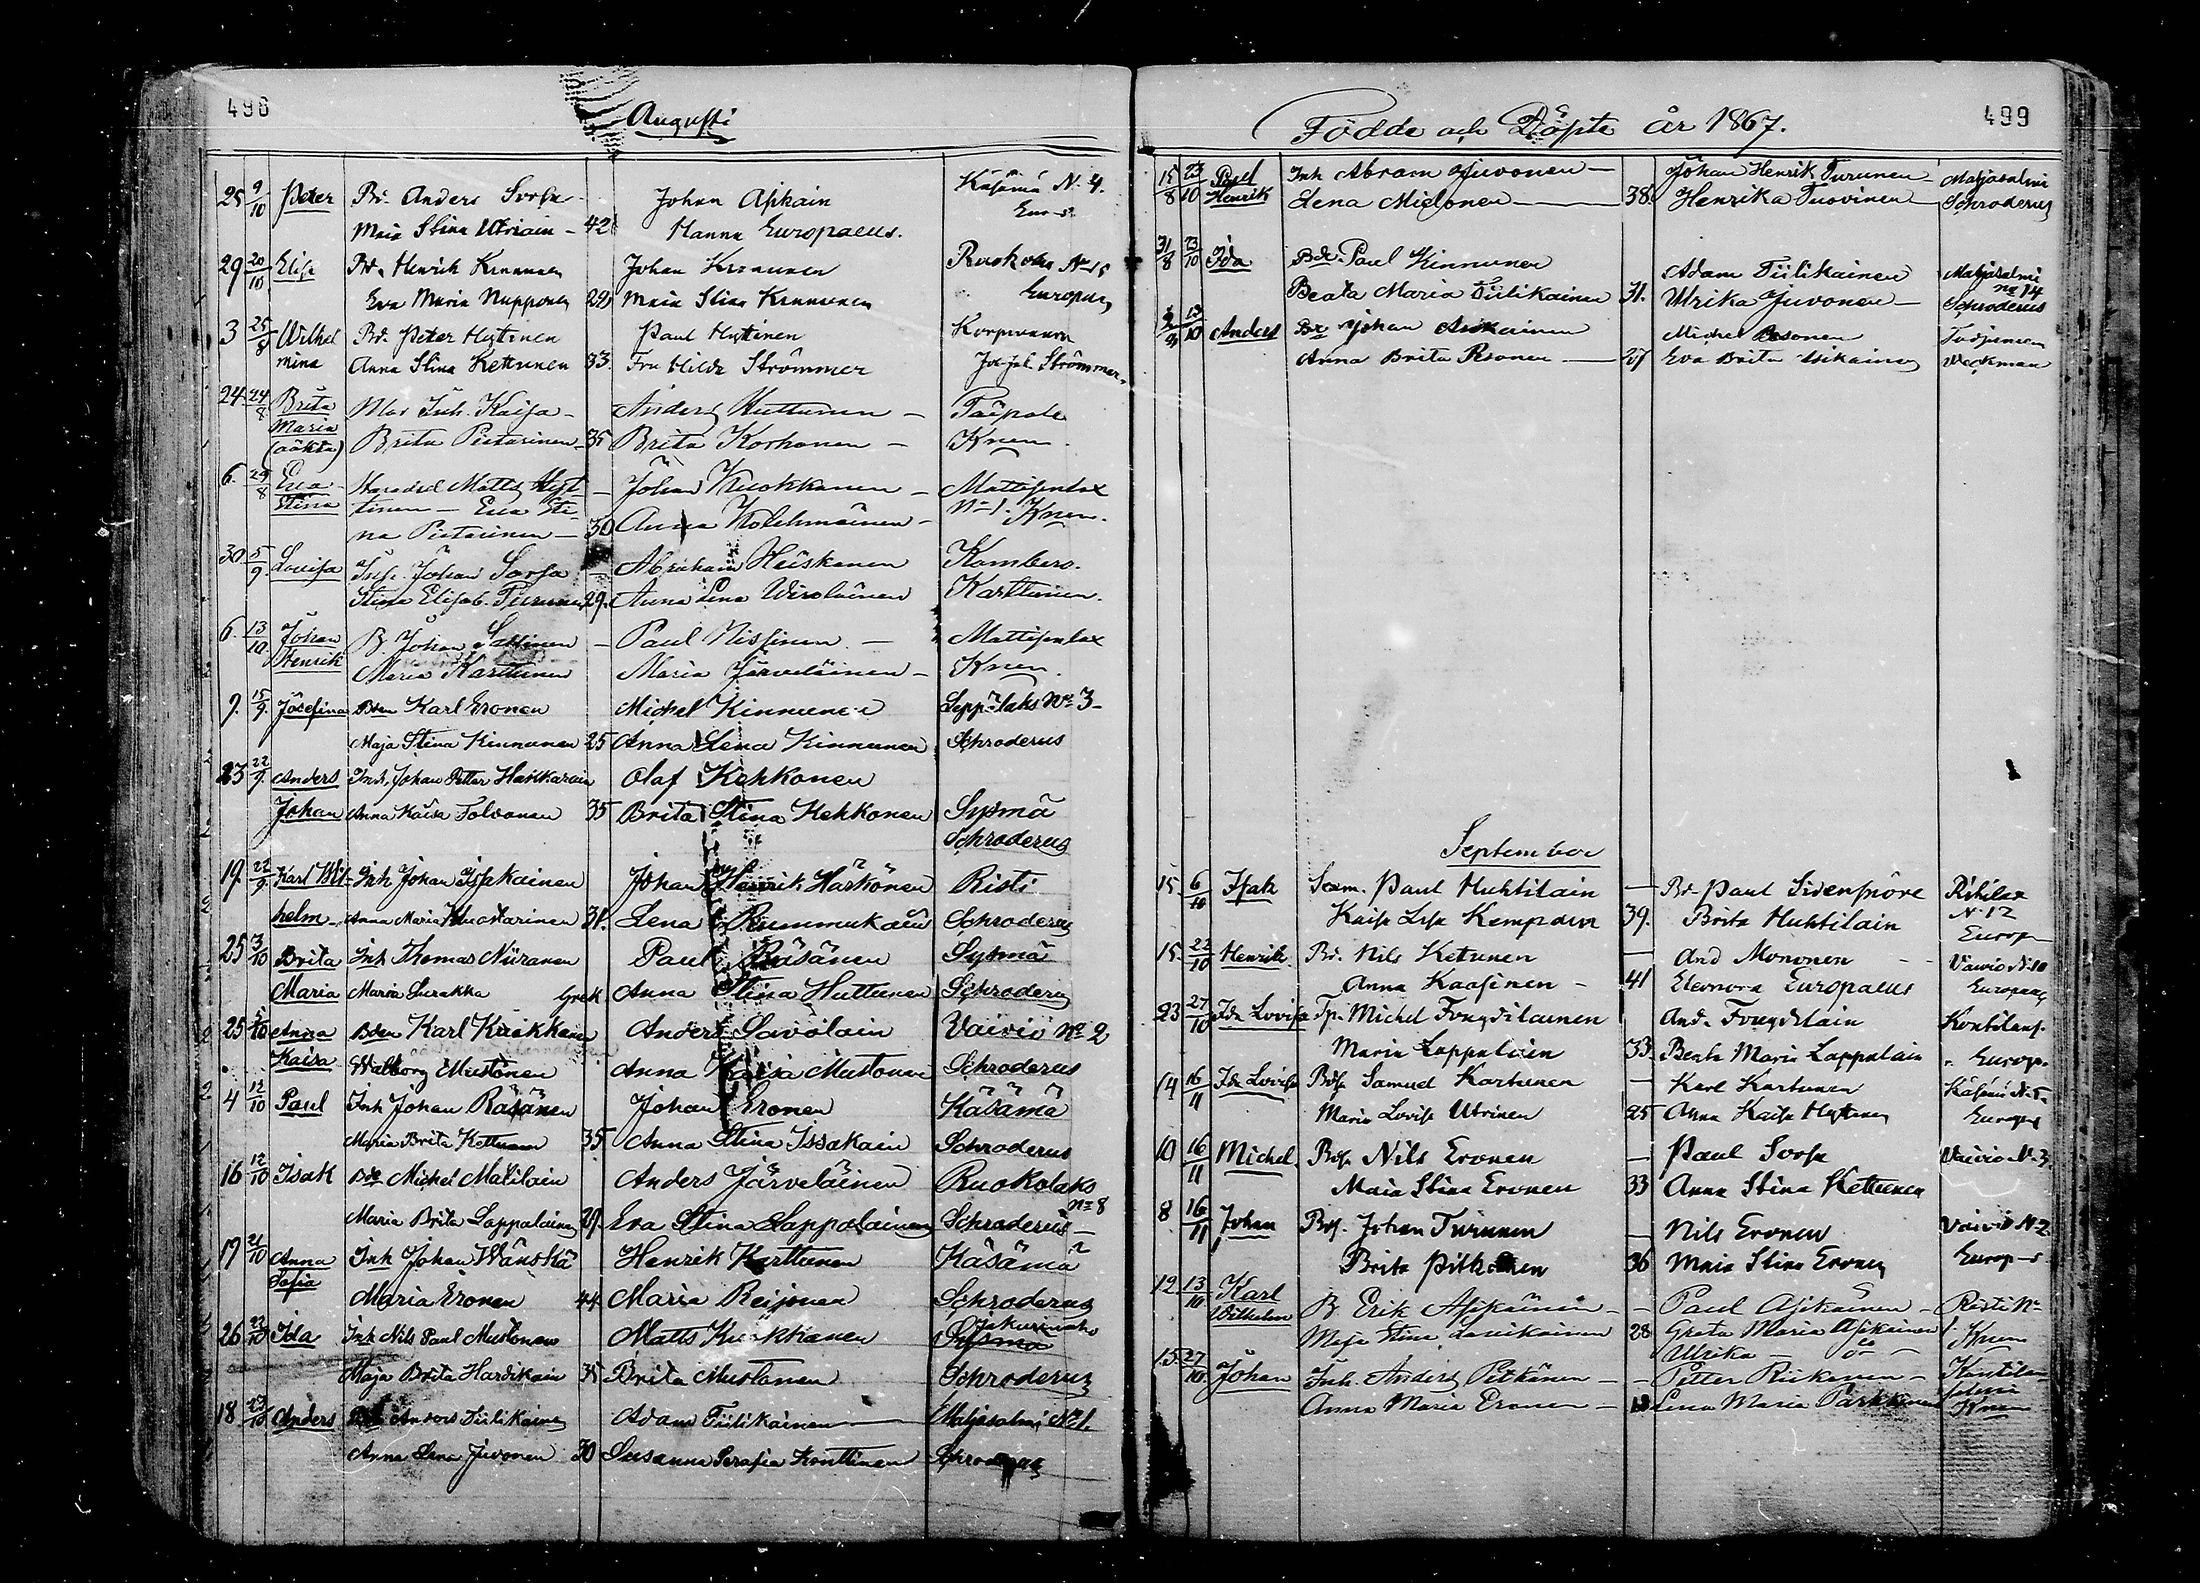 498
Augusti
25 9/10 Peter Bd. Anders Sorsa Johan Asikain Käsämä N. 4
Maia Stina Utriain 42 Hanna Europaeus.
29 20/10 Elisa Bd. Henrik Kinnunen Johan Kinnunen Ruokola N 15
Eva Maria Nupponen 22 Maia Stina Kinnunen Europaeus
3 25/8 Wilhel Bd. Peter Hyttinen Paul Hyttinen
mina Anna Stina Kettunen 33. Fru Hilda Strömmer Strömmer
24 24/8 Brita Inh. Kaisa Anders Huttunen Taipale
Maria
(oäkta) Brita Pietarinen 35 Brita Korhonen Knen
6. 29/8 Eva Matts Hyt- Johan Kuokkanen Mattisenlax
Stina tinen Eva Sti- N 1. Knen.
na Pietarinen 30 Anna Kolehmainen
30. 5/9 Lovisa Johan Sorsa Abraham Heiskanen Kambero.
Stina Elisab. Turunen 29. Anna Lena Wirolainen Karttunen.
6. 13/10 Johan B. Johan Paul Nissinen Mattisenlax
Henrik Maria Karttunen Maria Järveläinen Knen
9. 15/9 Josefina Bden Karl Eronen Michel Kinnunen Seppälaks No 3
Maja Stina Kinnunen 25 Anna Lena Kinnunen Schroderus
23 22/9 Anders Inh. Johan Petter Olaf Kekkonen
Johan Anna Kaisa Tolvanen 35 Brita Stina Kekkonen Sysmä
Schroderus
19. 22/9 Karl Wil- Inh Johan Issakainen Johan Henrik Härkönen Risti
helm Anna Maria 31. Lena Rummukain Schroderus
25 3/10 Brita Inh Thomas Niiranen Paul Räsänen Sysmä
Maria Maria Surakka Grek Anna Stina Huttunen Schroderus
25 5/10 Anna Bden Karl Anders Savolain Vaivio No 2
Kaisa Walborg Mustonen Anna Kaisa Mustonen Schroderus
4 12/10 Paul Inh Johan Räsänen Johan Eronen Käsämä
Maria Brita Kettunen 35 Anna Stina Issakain Schroderus
16 12/10 Isak Bde Michel Matilain Anders Järveläinen Ruokolaks
No 8
Maria Brita Lappalainen 29. Eva Stina Lappalainen Schroderus
17 21/10 Anna Inh Johan Wänskä Henrik Karttunen Käsämä
Sofia
Maria Eronen 44 Maria Reijonen Schroderus
26 Ida Inh Nils Paul Mustonen Matts Kuokkanen Sysmä
Maja Brita 35 Brita Mustonen Schroderus
18 Anders Anders Tiilikainen Adam Tiilikainen Maljasalmi No 1.
Anna Lena Juvonen 30 Susanna Serafia Konttinen Schroderus
Födde och Döpte år 1867.
499
15/8 23/10 Paul Inh Abram Juvonen Johan Henrik Turunen Maljasalmi
Henrik Lena Miettonen 38. Henrika Tuovinen Schroderus
31/8 23/10 Ida Bde Paul Kinnunen Adam Tiilikainen Maljasalmi
No 14
Beata Maria Tiilikainen 31. Ulrika Juvonen Schroderus
13/10 Anders Bde Johan Asikainen Michel Pesonen
Anna Brita Pesonen 27 Eva Brita Asikainen Weckman
September
15. 6/10 Isak Paul Huhtilain Bd. Paul Rikilax
Kaisa Lisa Kempain 39. Brita Huhtilain N. 12
Europ
15. 22/10 Henrik Bd. Nils Ketunen And Mononen Vaivio N. 10
Anna Kaasinen 41 Eleonora Europaeus Europaeus
23 27/10 Ida Lovisa Michel Kontilans.
Maria Lappalain 33. Beata Maria Lappalain Europ.
14 16/11 Ida Lovisa Bds. Samuel Kartunen Karl Kartunen Käsämä N. 5
Maria Lovisa Utrinen 25 Anna Kaisa Hyttinen Europs
10 16/11 Michel Bds. Nils Eronen Paul Sorsa Vaivio N. 3.
Maia Stina Eronen 33 Anna Stina Kettunen
8 16/11 Johan Bds. Johan Turunen Nils Eronen Vaivio N. 2
Brita 36 Maia Stina Eronen Europ-s
12. 13/10 Karl B. Erik Asikainen Paul Asikainen Risti No
Wilhelm Maja Stina 28 Greta Maria Asikainen 1. Knen
Ulrika
15. 27/10 Johan Inh. Anders Pitkänen Petter Riikonen
Anna Maria Eronen Lena Maria Parkkinen Knen